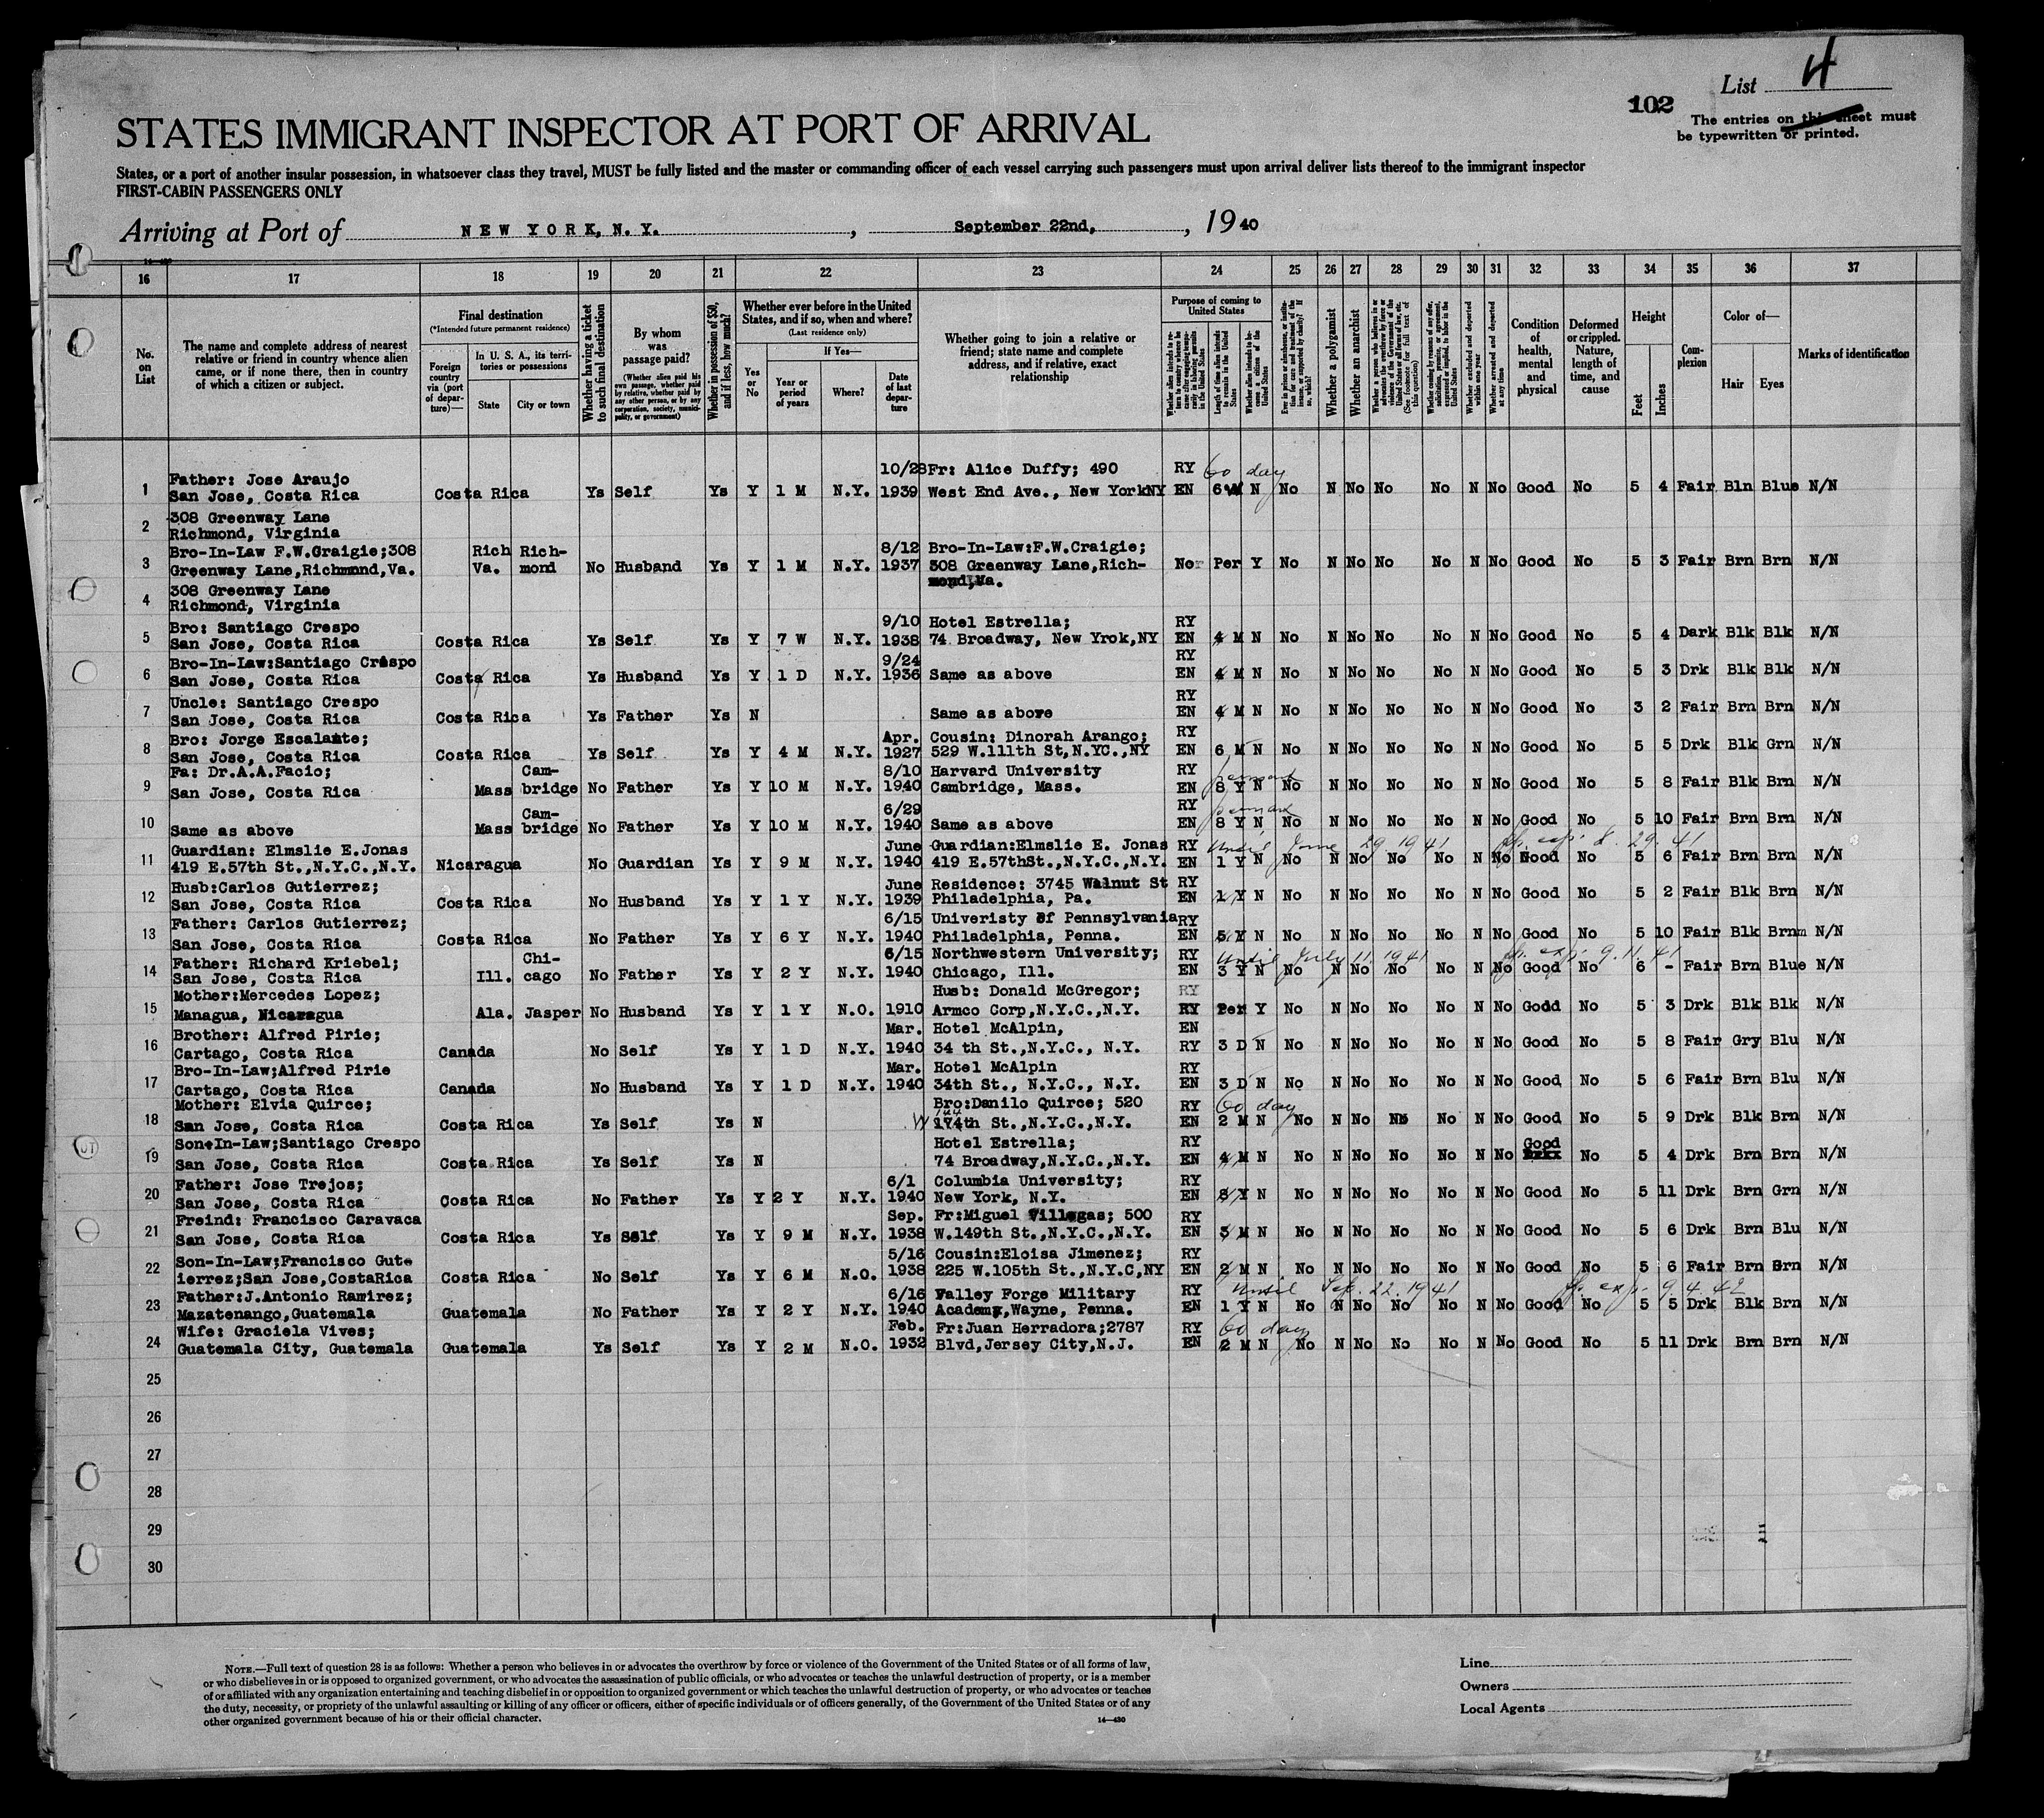 List 4
102
The entries on this sheet must
be typewritten or printed.
STATES IMMIGRANT INSPECTOR AT PORT OF ARRIVAL
States, or a port of another insular possession, in whatsoever class they travel, MUST be fully listed and the master or commanding officer of each vessel carrying such passengers must upon arrival deliver lists thereof to the immigrant inspector
FIRST-CABIN PASSENGERS ONLY
Arriving at Port of NEW YORK, N.Y., September 22nd, 1940
16 17 18 19 20 21 22 23 24 25 26 27 28 29 30 31 32 33 34 35 36 37
No. on List
The name and complete address of nearest relative or friend in country whence alien came, or if none there, then in country of which a citizen or subject.
Final destination
(*Intended future permanent residence)
Foreign country via (port of departure)—
In U. S. A., its territories or possessions
State City or town
Whether having a ticket to such final destination
By whom was passage paid?
(Whether alien paid his own passage, whether paid by relative, whether paid by any other person, or by any corporation, society, municipality, or government)
Whether in possession of $50, and if less, how much?
Whether ever before in the United States, and if so, when and where?
(Last residence only)
Yes or No
If Yes—
Year or period of years
Where?
Date of last departure
Whether going to join a relative or friend; state name and complete address, and if relative, exact relationship
Purpose of coming to United States
Length of time alien intends to remain in the United States
Whether alien intends to become a citizen of the United States
Whether a polygamist
Whether an anarchist
Whether excluded and deported within one year
Whether arrested and deported at any time
Condition of health, mental and physical
Deformed or crippled. Nature, length of time, and cause
Height
Feet Inches
Complexion
Color of—
Hair Eyes
Marks of identification
10/28 Fr: Alice Duffy; 490 RY 60 day
1 Father: Jose Araujo
San Jose, Costa Rica Costa Rica Ys Self Ys Y 1 M N.Y. 1939 West End Ave., New YorkNY EN 6 N No N No No No N No Good No 5 4 Fair Bln Blue N/N
2 308 Greenway Lane
Richmond, Virginia
3 Bro-In-Law F.W.Graigie;308 Rich Rich- 8/12 Bro-In-Law:F.W.Craigie;
Greenway Lane,Richmond,Va. Va. mond No Husband Ys Y 1 M N.Y. 1937 308 Greenway Lane,Rich- No Per Y No N No No No N No Good No 5 3 Fair Brn Brn N/N
mond,Va.
4 308 Greenway Lane
Richmond, Virginia
5 Bro: Santiago Crespo 9/10 Hotel Estrella; RY
San Jose, Costa Rica Costa Rica Ys Self Ys Y 7 W N.Y. 1938 74 Broadway, New Yrok,NY EN 4 M N No N No No No N No Good No 5 4 Dark Blk Blk N/N
6 Bro-In-Law:Santiago Crespo 9/24 RY
San Jose, Costa Rica Costa Rica Ys Husband Ys Y 1 D N.Y. 1936 Same as above EN 4 M N No N No No No N No Good No 5 3 Drk Blk Blk N/N
7 Uncle: Santiago Crespo RY
San Jose, Costa Rica Costa Rica Ys Father Ys N Same as above EN 4 M N No N No No No N No Good No 3 2 Fair Brn Brn N/N
8 Bro: Jorge Escalante; Apr. Cousin: Dinorah Arango; RY
San Jose, Costa Rica Costa Rica Ys Self Ys Y 4 M N.Y. 1927 529 W.111th St,N.YC.,NY EN 6 M N No N No No No N No Good No 5 5 Drk Blk Grn N/N
9 Fa: Dr.A.A.Facio; Cam- 8/10 Harvard University RY
San Jose, Costa Rica Mass bridge No Father Ys Y 10 M N.Y. 1940 Cambridge, Mass. EN 8 Y N No N No No No N No Good No 5 8 Fair Blk Brn N/N
10 Cam- 6/29 RY
Same as above Mass bridge No Father Ys Y 10 M N.Y. 1940 Same as above EN 8 Y N No N No No No N No Good No 5 10 Fair Brn Brn N/N
11 Guardian: Elmslie E.Jonas June Guardian:Elmslie E. Jonas RY Until June 29. 1941 exp. 8. 29. 41
419 E.57th St.,N.Y.C.,N.Y. Nicaragua No Guardian Ys Y 9 M N.Y. 1940 419 E.57thSt.,N.Y.C.,N.Y. EN 1 Y N No N No No No N No Good No 5 6 Fair Brn Brn N/N
12 Husb:Carlos Gutierrez; June Residence: 3745 Walnut St RY
San Jose, Costa Rica Costa Rica No Husband Ys Y 1 Y N.Y. 1939 Philadelphia, Pa. EN 1 Y N No N No No No N No Good No 5 2 Fair Blk Brn N/N
13 Father: Carlos Gutierrez; 6/15 Univeristy of Pennsylvania RY
San Jose, Costa Rica Costa Rica No Father Ys Y 6 Y N.Y. 1940 Philadelphia, Penna. EN 5 Y N No N No No No N No Good No 5 10 Fair Blk Brnm N/N
14 Father: Richard Kriebel; Chi- 6/15 Northwestern University; RY Until July 11, 1941 exp. 9. 11. 41
San Jose, Costa Rica Ill. cago No Father Ys Y 2 Y N.Y. 1940 Chicago, Ill. EN 3 Y N No N No No No N No Good No 6 - Fair Brn Blue N/N
15 Mother:Mercedes Lopez; Husb: Donald McGregor; RY
Managua, Nicaragua Ala. Jasper No Husband Ys Y 1 Y N.O. 1910 Armco Corp,N.Y.C.,N.Y. RY Per Y No N No No No N No Good No 5 3 Drk Blk Blk N/N
16 Brother: Alfred Pirie; Mar. Hotel McAlpin, EN
Cartago, Costa Rica Canada No Self Ys Y 1 D N.Y. 1940 34 th St.,N.Y.C., N.Y. RY 3 D N No N No No No N No Good No 5 8 Fair Gry Blu N/N
17 Bro-In-Law;Alfred Pirie Mar. Hotel McAlpin RY
Cartago, Costa Rica Canada No Husband Ys Y 1 D N.Y. 1940 34th St., N.Y.C., N.Y. EN 3 D N No N No No No N No Good No 5 6 Fair Brn Blu N/N
18 Mother: Elvia Quirce; Bro:Danilo Quirce; 520 RY 60 day
San Jose, Costa Rica Costa Rica Ys Self Ys N W 144 174th St.,N.Y.C.,N.Y. EN 2 M N No N No No No N No Good No 5 9 Drk Blk Brn N/N
19 Son-In-Law;Santiago Crespo Hotel Estrella; RY Good
San Jose, Costa Rica Costa Rica Ys Self Ys N 74 Broadway,N.Y.C.,N.Y. EN 4 M N No N No No No N No No 5 4 Drk Brn Brn N/N
20 Father: Jose Trejos; 6/1 Columbia University; RY
San Jose, Costa Rica Costa Rica No Father Ys Y 2 Y N.Y. 1940 New York, N.Y. EN 8 Y N No N No No No N No Good No 5 11 Drk Brn Grn N/N
21 Freind: Francisco Caravaca Sep. Fr:Miguel Villegas; 500 RY
San Jose, Costa Rica Costa Rica Ys Self Ys Y 9 M N.Y. 1938 W.149th St.,N.Y.C.,N.Y. EN 3 M N No N No No No N No Good No 5 6 Drk Brn Blu N/N
22 Son-In-Law;Francisco Gut- 5/16 Cousin:Eloisa Jimenez; RY
ierrez;San Jose,CostaRica Costa Rica No Self Ys Y 6 M N.O. 1938 225 W.105th St.,N.Y.C,NY EN 2 M N No N No No No N No Good No 5 6 Fair Brn Brn N/N
23 Father:J.Antonio Ramirez; 6/16 Valley Forge Military RY Until Sep. 22. 1941 exp. 9. 4. 42
Mazatenango,Guatemala Guatemala No Father Ys Y 2 Y N.Y. 1940 Academy,Wayne, Penna. EN 1 Y N No N No No No N No Good No 5 5 Drk Blk Brn N/N
24 Wife: Graciela Vives; Feb. Fr:Juan Herradora;2787 RY 60 day
Guatemala City, Guatemala Guatemala Ys Self Ys Y 2 M N.O. 1932 Blvd,Jersey City,N.J. EN 2 M N No N No No No N No Good No 5 11 Drk Brn Brn N/N
25
26
27
28
29
30
NOTE.—Full text of question 28 is as follows: Whether a person who believes in or advocates the overthrow by force or violence of the Government of the United States or of all forms of law,
or who disbelieves in or is opposed to organized government, or who advocates the assassination of public officials, or who advocates or teaches the unlawful destruction of property, or is a member
of or affiliated with any organization entertaining and teaching disbelief in or opposition to organized government or which teaches the unlawful destruction of property, or who advocates or teaches
the duty, necessity, or propriety of the unlawful assaulting or killing of any officer or officers, either of specific individuals or of officers generally, of the Government of the United States or of any
other organized government because of his or their official character.
14—430
Line
Owners
Local Agents